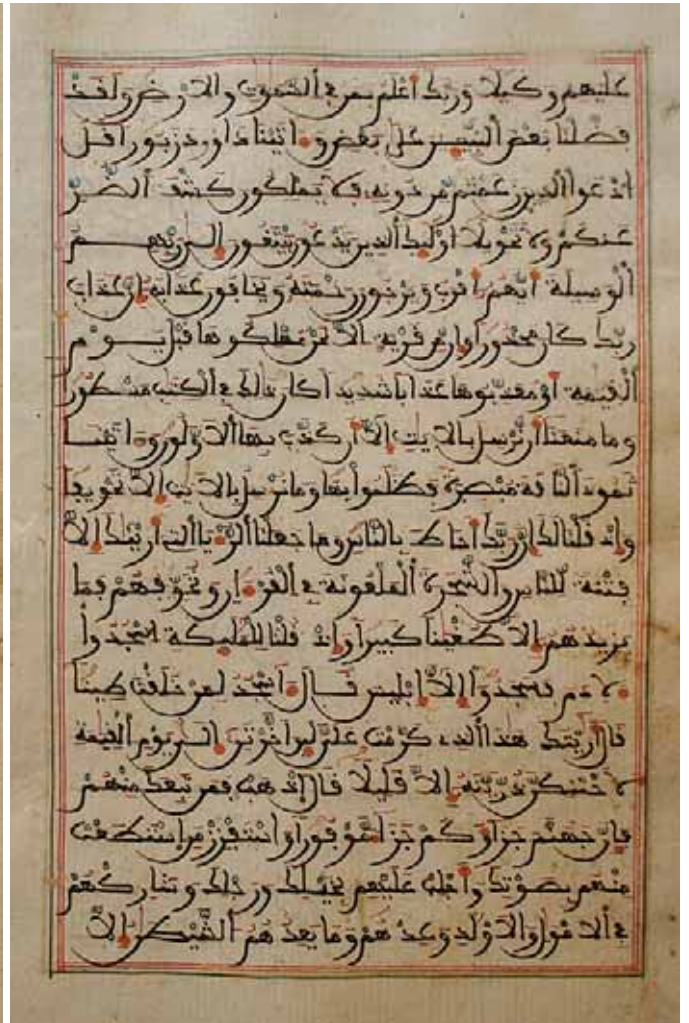 عليهم وكيلا وربك أعلم بمن في السموت والارض ولقد
فضلنا بعض النبيـن على بعض وءاتينا داوود زبورا قل
ادعوا الذين زعمتم من دونه فلا يملكون كشف الضر
عنكم ولا تحويلا أوليك الذين يدعون يبتغون إلى ربهم
الوسيلة أيهم أقرب ويرجون رحمته ويخافون عذابه إن عذاب
ربك كان محذورا وإن من قرية الا نحن مهلكوها قبل يوم
القيمة أو معذبوها عذابا شديدا كان ذلك في الكتب مسطورا
وما منعنا أن نرسل بالايت إلا أن كذب بها الاولون وءاتينا
ثمود الناقة مبصرة فظلموا بها وما نرسل بالايت إلا تخويفا
وإذ قلنا لك إن ربك أحاط بالناس وما جعلنا الرءيا التي أرينك إلا
فتنة للناس والشجرة الملعونة في القرءان ونخوفهم فما
يزيدهم إلا طغينا كبيرا وإذ قلنا للمليكة اسجدوا
لادم فسجدوا إلا إبليس قال ءاسجد لمن خلقت طينا
قال أريتك هذا الذي كرمت علي لين أخرتن إلى يوم القيمة
لأحتنكن ذريته إلا قليلا قال اذهب فمن تبعك منهم
فإن جهنم جزاؤكم جزاء موفورا واستفزز من استطعت
منهم بصوتك وأجلب عليهم بخيلك ورجلك وشاركهم
في الامول والاولد وعدهم وما يعدهم الشيطن إلا